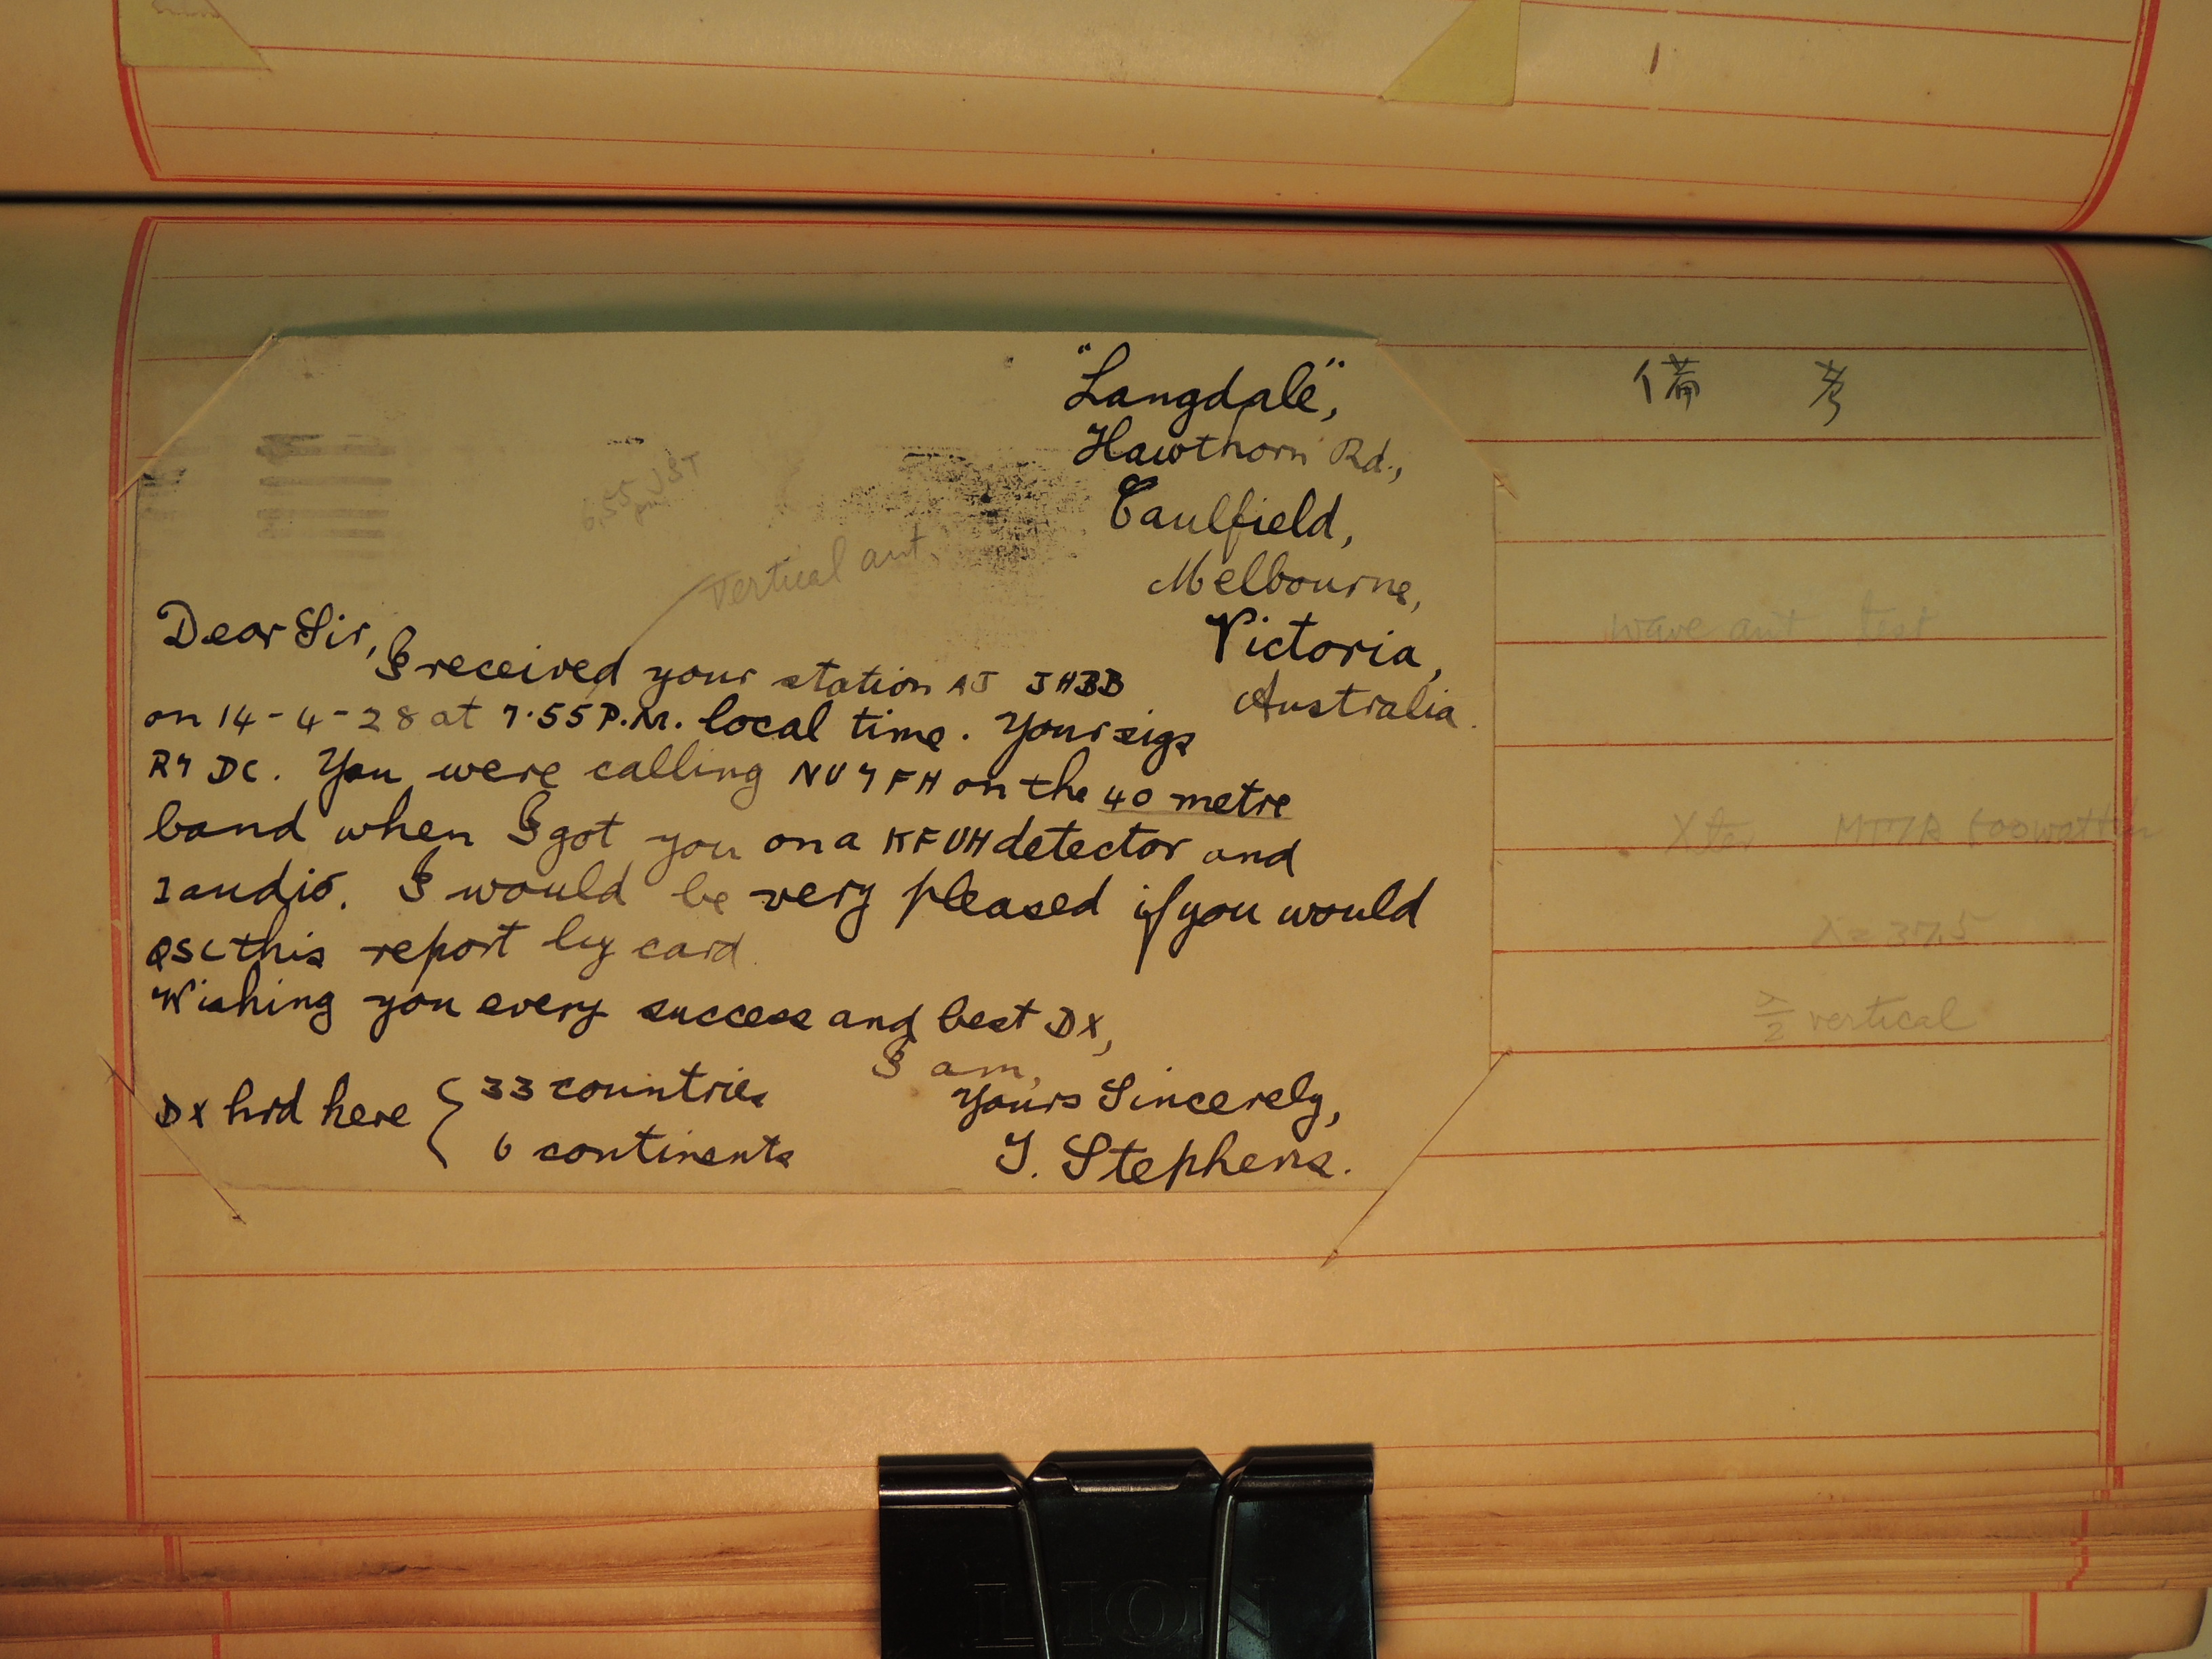 "Langdale",
Hawthorn Rd.,
Caulfield,
Melbourne,
Victoria,
Australia.
6.55 pm JST
Vertical ant.
Dear Sir,
I received your station AJ JHBB
on 14-4-28 at 7.55 P.M. local time. Your sigs
R7 DC. You were calling NU7FH on the 40 metre
band when I got you on a KFUH detector and
1 audio. I would be very pleased if you would
QSL this report by card.
Wishing you every success and best DX,
I am,
Yours Sincerely,
J. Stephens.
DX hrd here { 33 countries
6 continents
備考
wave ant test
Xter 500 watt
λ = 37.5
λ/2 vertical
LION